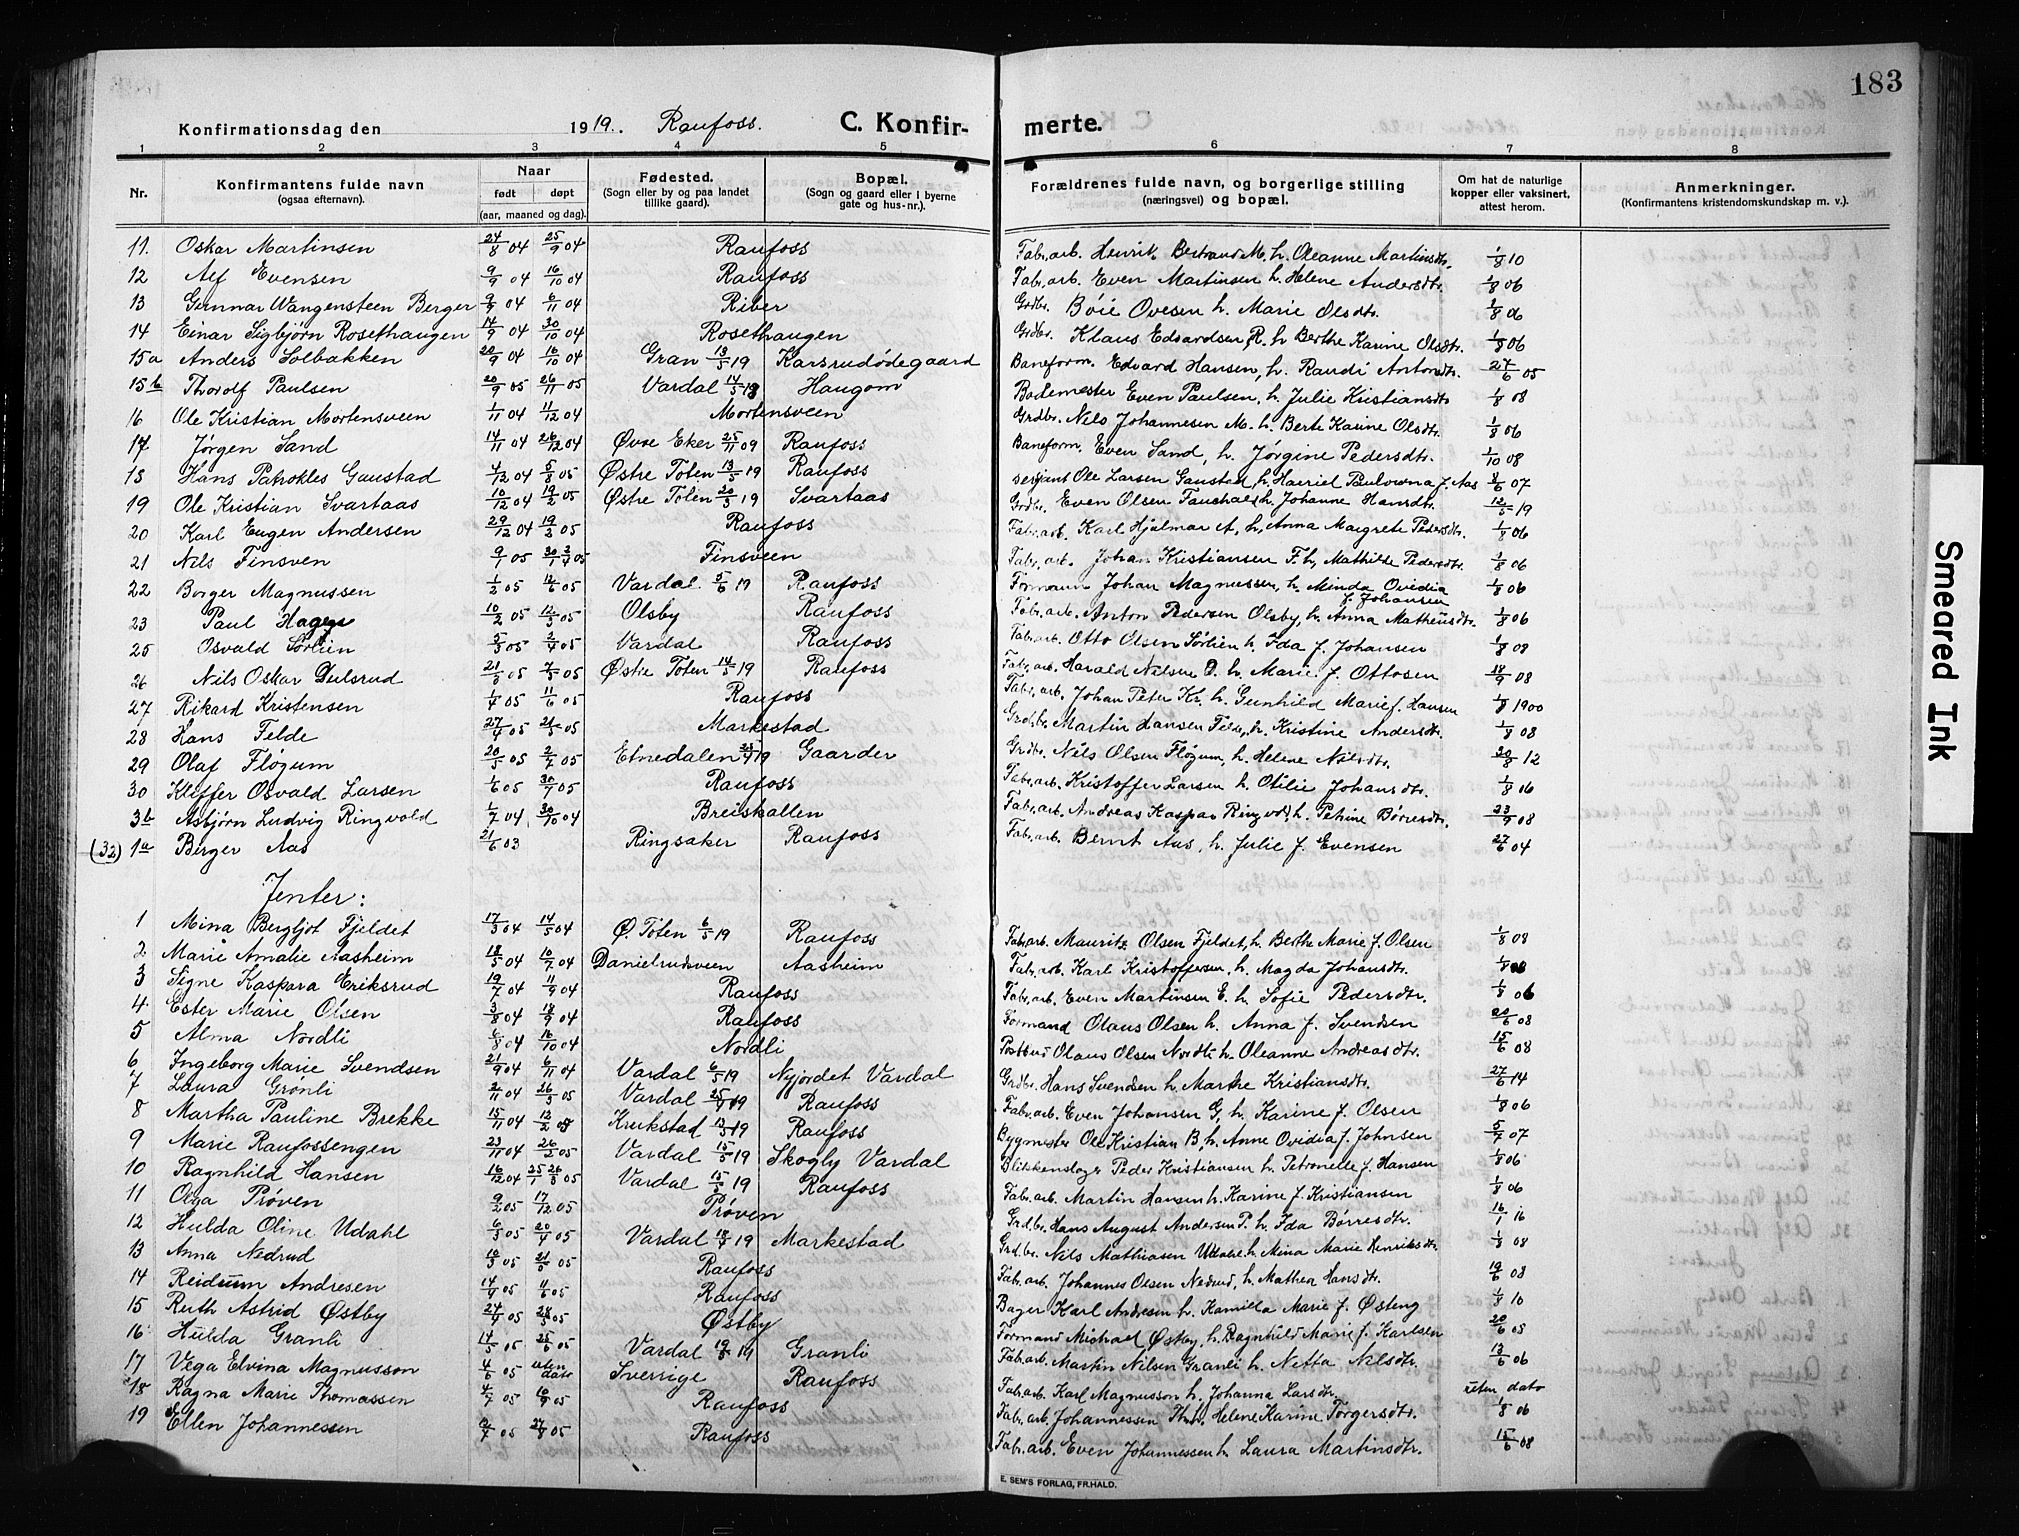 183
Konfirmationsdag den 1919. Raufoss. C. Konfirmerte.
1 2 3 4 5 6 7 8
Nr. Konfirmantens fulde navn (ogsaa efternavn). Naar født døpt (aar, maaned og dag). Fødested. (Sogn eller by og paa landet tillike gaard). Bopæl. (Sogn og gaard eller i byerne gate og hus-nr.). Forældrenes fulde navn, og borgerlige stilling (næringsvei) og bopæl. Om hat de naturlige kopper eller vaksinert, attest herom. Anmerkninger. (Konfirmantens kristendomskundskap m. v.).
11. Oskar Martinsen 24/8 04 25/9 04 Raufoss Fab. arb. Henrik Bertrand M. h. Oleanne Martinsdtr. 1/8 10
12 Alf Evensen 9/9 04 16/10 04 Raufoss Fab. arb. Even Martinsen h. Helene Andersdtr. 1/8 06
13 Gunnar Wangensteen Berger 9/9 04 6/11 04 Riber Grdbr. Bøie Ovesen h. Marie Olsdtr. 1/8 06
14 Einar Sigbjørn Rosethaugen 14/9 04 30/10 04 Rosethaugen Grdbr. Klaus Edvardsen R. h Berthe Karine Olsdtr. 1/8 06
15a Anders Solbakken 20/9 04 16/10 04 Gran 13/5 19 Karsrudødegaard Baneform. Edvard Hansen, h. Randi Antondtr. 27/6 05
15b Thorolf Paulsen 20/9 05 26/11 05 Vardal 14/5 19 Haugom Bademester Even Paulsen, h. Julie Kristiansdtr 1/8 08
16 Ole Kristian Mortensveen 1/11 04 11/12 04 Mortensveen Grdbr. Nils Johannesen M. h. Berte Karine Olsdtr. 1/8 06
17 Jørgen Sand 14/11 04 26/12 04 Øvre Eker 25/11 09 Raufoss Baneform. Even Sand, h. Jørgine Pedersdtr. 1/10 08
18 Hans Patrokles Gaustad 4/12 04 5/8 05 Østre Toten 13/5 19 Raufoss Ole Larsen Gaustad h. f. Aas 07
19 Ole Kristian Svartaas 10/12 04 19/2 05 Østre Toten 20/3 19 Svartaas Grdbr. Even Olsen h. Johanne Hansdtr. 12/5 19
20 Karl Eugen Andersen 29/12 04 19/3 05 Raufoss Fab. arb. Karl Hjalmar A, h, Anna Margrete Pedersdtr. 1/8 06
21 Nils Finsven 9/1 05 Finsveen Fab. arb. Johan Kristiansen F. h, Mathilde Pedersdtr. 1/8 06
22 Borger Magnussen 1/2 05 12/6 05 Vardal 5/6 19 Raufoss Formann Johan Magnussen, h. Minda Ovidia f. Johansen 1/8 06
23 Paul Hagen 10/2 05 12/3 05 Olsby Raufoss Fab. arb. Anton Pedersen Olsby, h. Anna Matheusdtr. 1/8 06
25 Osvald Sørlien 5/3 05 2/4 05 Vardal Raufoss Fab. arb. Otto Olsen Sørlien h. Ida f. Johansen 1/8 08
26 Nils Oskar Dulsrud 21/3 05 7/5 05 Østre Toten 14/5 19 Raufoss Fab. arb. Harald Nilsen D. h. Marie f. Ottosen 18/9 08
27 Rikard Kristensen 1/4 05 11/6 05 Raufoss Fab. arb. Johan Peter Kr. h. Gunhild Marie f. Hansen 1/8 1900
28 Hans Felde 27/4 05 21/5 05 Markestad Grd.br. Martin Hansen Felde, h. Kristine Andersdtr. 1/8 08
29 Olaf Fløgum 20/5 05 2/7 05 Etnedalen 19 Gaarder Grdbr. Nils Olsen Fløgum, h. Helene Nilsdtr. 20/8 12
30 Kleffer Osvald Larsen 1/6 05 30/7 05 Raufoss Fab. arb. Kristoffer Larsen h. Otilie Johansdtr. 1/8 16
3b Asbjørn Ludvig Ringvold 1/7 04 30/10 04 Breiskallen Fab. arb. Andreas Kaspar Ringvold, h. Petrine Børresdtr. 23/9 08
(32) 1a Berger Aas 21/6 03 Ringsaker Raufoss Fab. arb. Bernt Aas, h. Julie f. Evensen 27/6 04
Jenter:
1 Mina Bergljot Fjeldet 17/3 04 14/5 04 Ø. Toten 6/5 19 Raufoss Fab. arb. Mauritz Olsen Fjeldet, h. Berthe Marie f. Olsen 1/8 08
2 Marie Amalie Aasheim 18/5 04 10/7 04 Danielrudsveen Aasheim Fab. arb. Karl Kristoffersen, h. Magda Johansdtr. 1/8
3 Signe Kaspara Eriksrud 19/7 04 11/9 04 Raufoss Fab. arb. Even Martinsen E. h. Sofie Pedersdtr. 1/8 06
4 Ester Marie Olsen 3/8 04 18/9 04 Raufoss Formand Olaus Olsen h. Anna f. Svendsen 20/6 08
5 Alma Nordli 6/8 04 16/10 04 Nordli Postbud Olaus Olsen Nordli h. Oleanne Andreasdtr. 15/6 08
6 Ingeborg Marie Svendsen 21/9 04 6/11 04 Vardal 6/5 19 Nyjordet Vardal Grdbr. Hans Svendsen h. Marthe Kristiansdtr. 27/6 14
7 Laura Grønli 2/11 04 26/3 05 Vardal 25/4 19 Raufoss Fab. arb. Even Johansen G, h. Karine f. Olsen 1/8 06
8 Martha Pauline Brekke 15/11 04 12/2 05 Krukstad 13/5 19 Raufoss Bygmester Ole Kristian B, h. Anne Ovidia f. Johnsen 5/7 07
9 Marie Raufossengen 23/11 04 26/2 05 Vardal 15/5 19 Skogly Vardal Blikkenslager Peder Kristiansen h. Petronelle f. Hansen 1/8 06
10 Ragnhild Hansen 16/12 04 25/1 26/3 05 Vardal 15/5 19 Raufoss Fab. arb. Martin Hansen h. Karine f. Kristiansen 1/8 06
11 Olga Prøven 9/2 05 17/12 05 Prøven Grdbr. Hans August Andersen P. h. Ida Børresdtr. 16/1 16
12 Hulda Oline Udahl 6/3 05 20/4 05 Vardal 18/4 19 Markestad Grd.br. Nils Mathiasen Udahl h. Mina Marie Henriksdtr. 1/8 08
13 Anna Nedrud 10/3 05 21/5 05 Raufoss Fab. arb. Johannes Olsen Nedrud, h. Mathea Hansdtr. 19/6 08
14 Reidunn Andresen 14/4 05 11/6 05 Raufoss Bager Karl Andresen h. Kamilla Marie f. Østeng 1/8 10
15 Ruth Astrid Østby 24/4 05 28/5 05 Østby Formand Michael Østby, h. Ragnhild Marie f. Karlsen 20/6 05
16 Hulda Granli 14/5 05 25/6 05 Vardal 19 Granli Fab. arb. Martin Nilsen Granli h. Netta Nilsdtr. 13/6 06
17 Vega Elvina Magnusson 4/6 05 uten dato Sverrige Raufoss Fab. arb. Karl Magnusson h. Johanna Larsdtr. uten dato
18 Ragna Marie Thomassen 4/7 05 10/9 05 Raufoss Fab. arb. Johannessen h. Helene Karine Torgersdtr. 1/8 06
19 Ellen Johannessen 12/7 05 27/8 05 Raufoss Fab. arb. Even Johannessen h. Laura Martinsdtr. 15/6 08
E. SEM'S FORLAG, FR.HALD.
Smeared Ink